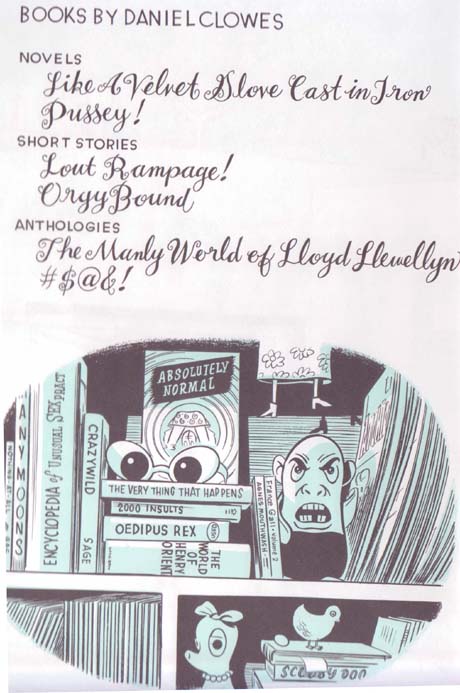 BOOKS BY DANIEL CLOWES
NOVELS
Like A Velvet Glove Cast in Iron
Pussey!
SHORT STORIES
Lout Rampage!
OrgyBound
ANTHOLOGIES
The Manly World of Lloyd Llewellyn
#$@&!
ABSOLUTELY
NORMAL
MANY MOONS
ENCYCLOPEDIA of UNUSUAL SEX PRACT
CRAZY WILD
SAGE
THE VERY THING THAT HAPPENS
2000 INSULTS
OEDIPUS REX
THE
WORLD
OF
HENRY
ORIENT
AGNES MOUTHWASH
VOLUME 2
SCOOBY DOO